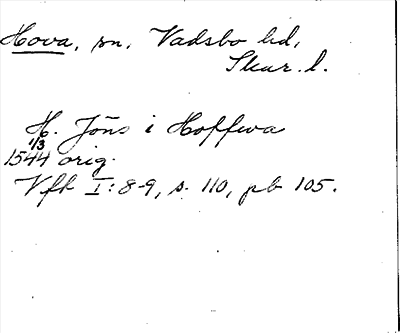 Hova, sn, Vadsbo hd,
Skar. l.
H. Jöns i Hoffwa
1/3
1544 orig.
Vfh I: 8-9, s. 110, pb 105.